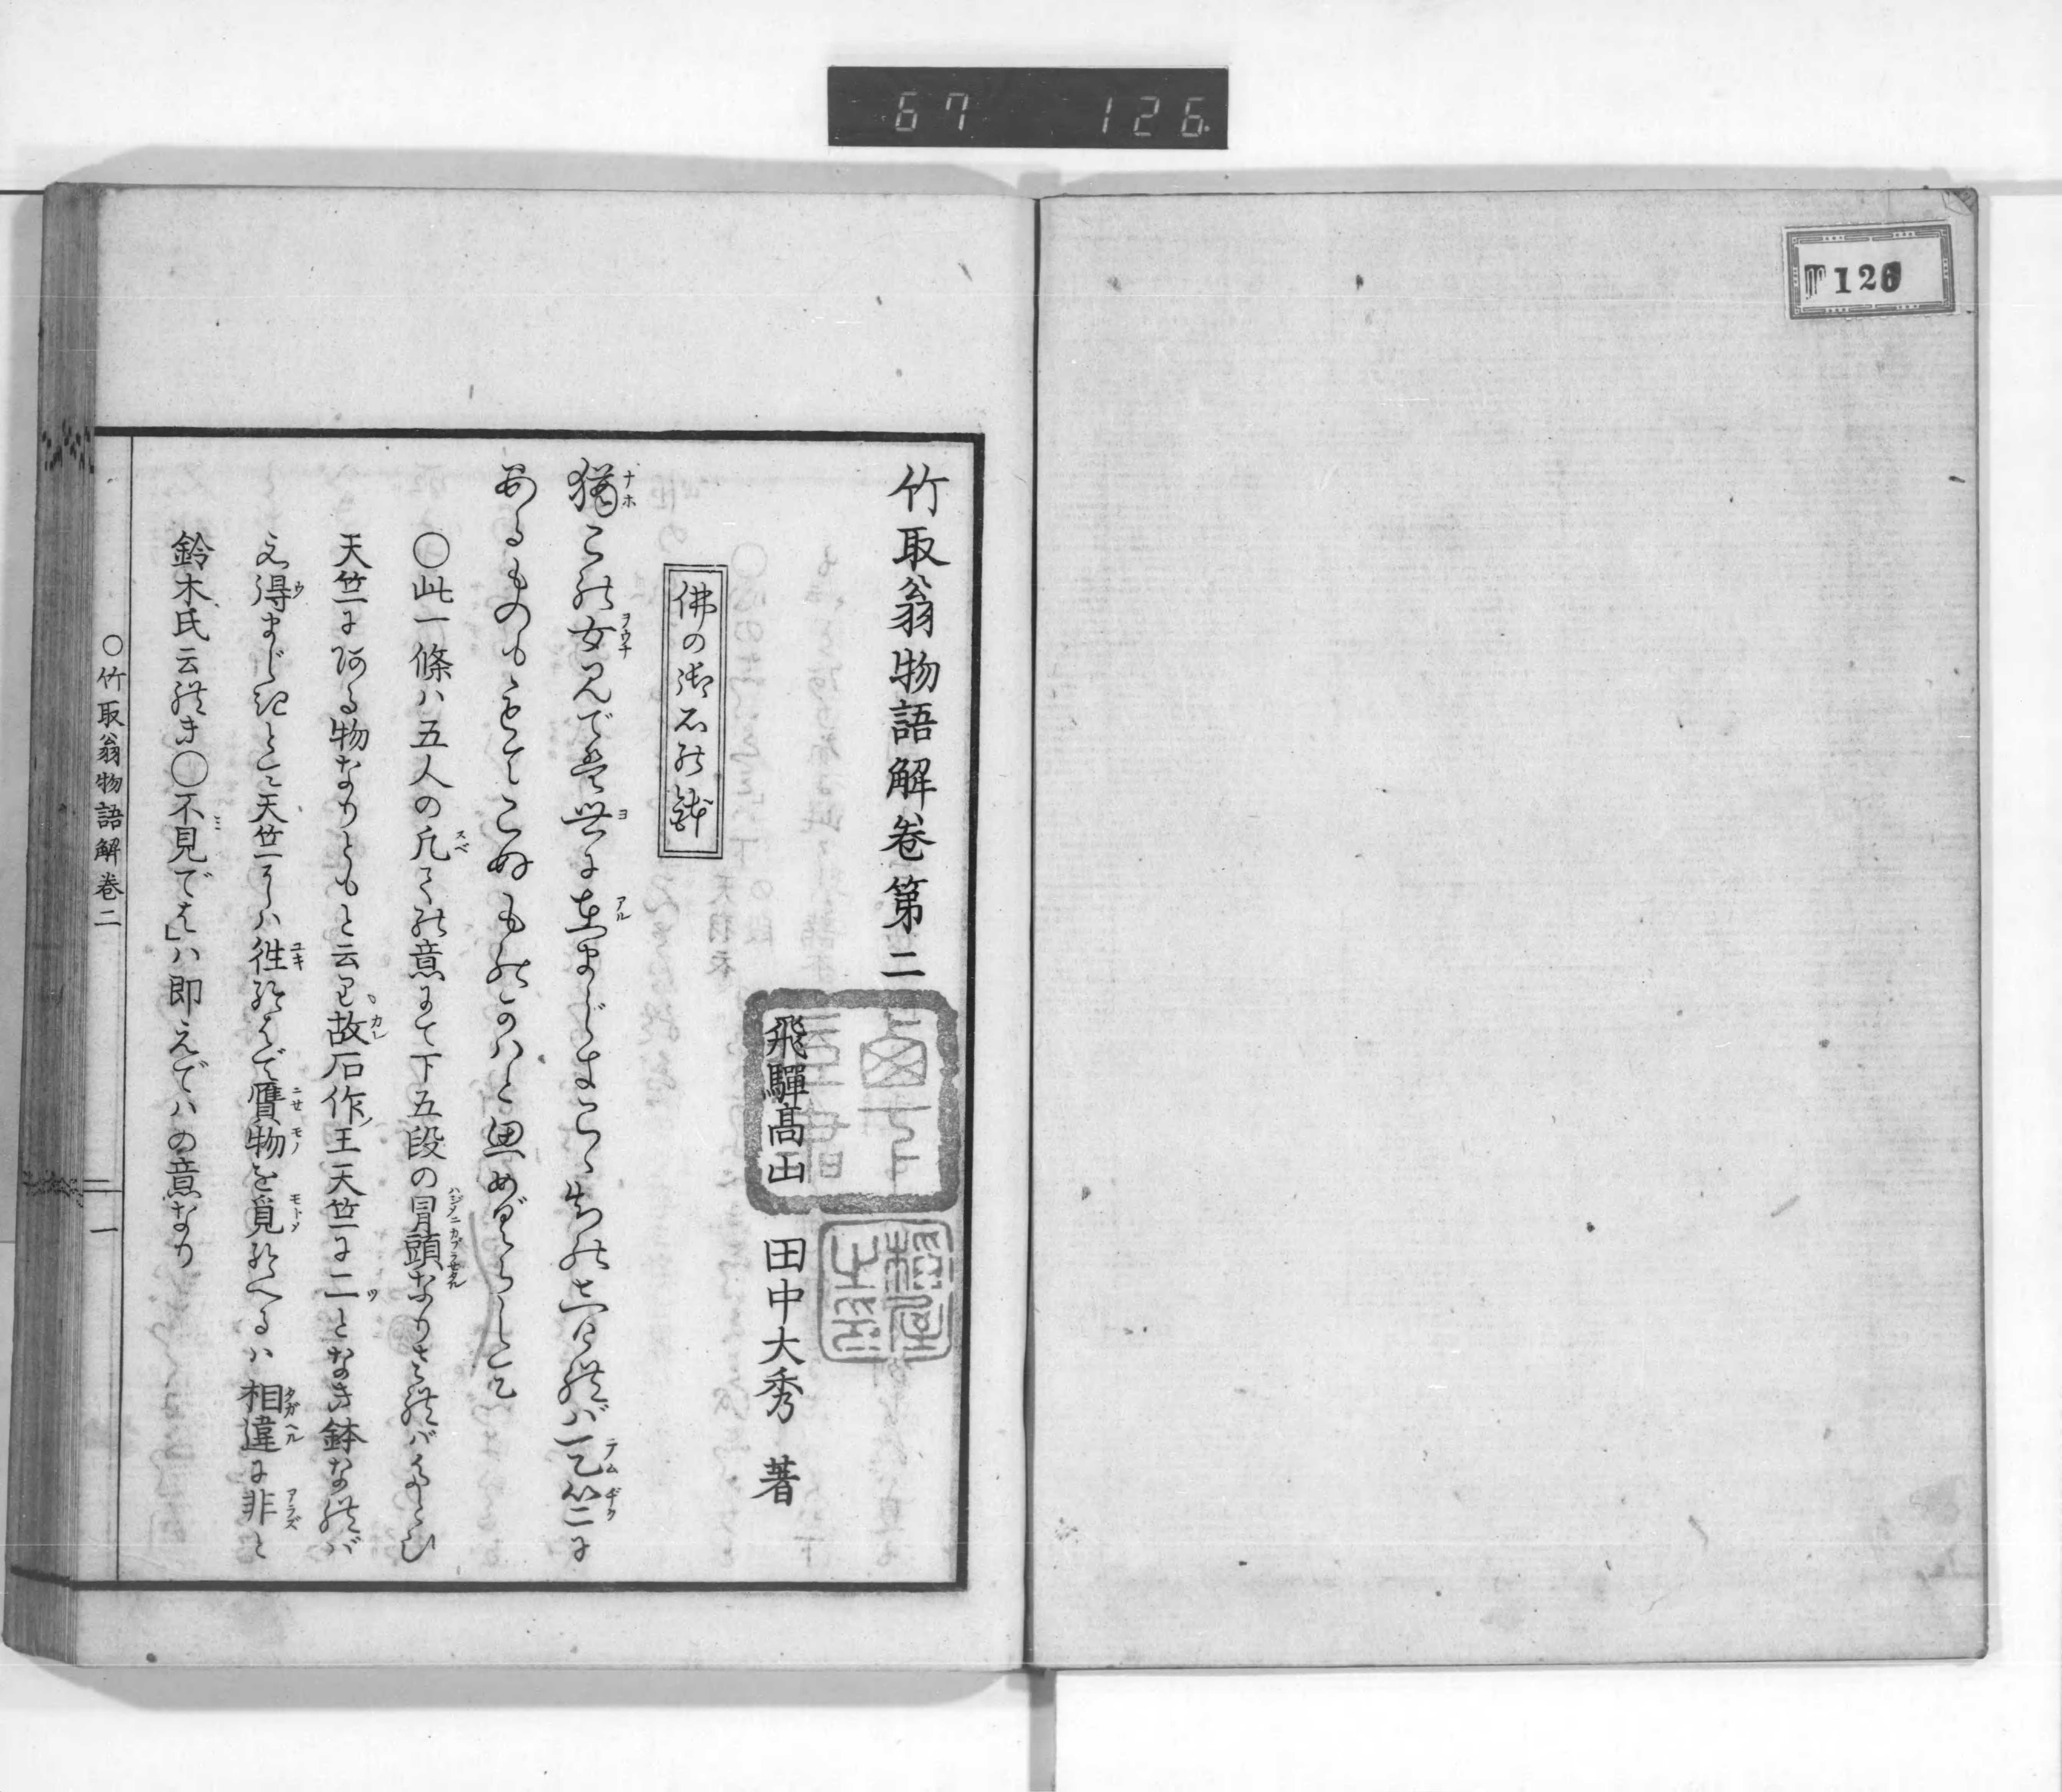 67 126
126
竹取翁物語解卷第二
飛驒髙山 田中大秀 著
佛の御石の鉢
猶この女見では世に在まじきこゝちのしければ天竺に
あるものももてこぬものかはと思めぐらして
〇此一條ハ五人の凡ての意にて下五段の冒頭なりされバ
天竺にある物なりともと云り故石作ノ王天竺に二ツとなき鉢なれバ
え得まじきとて天竺にハ徃給はで贋物を覓給へるハ相違に非と
鈴木氏云れき〇不見では」ハ即えでハの意なり
〇竹取翁物語解卷二
一